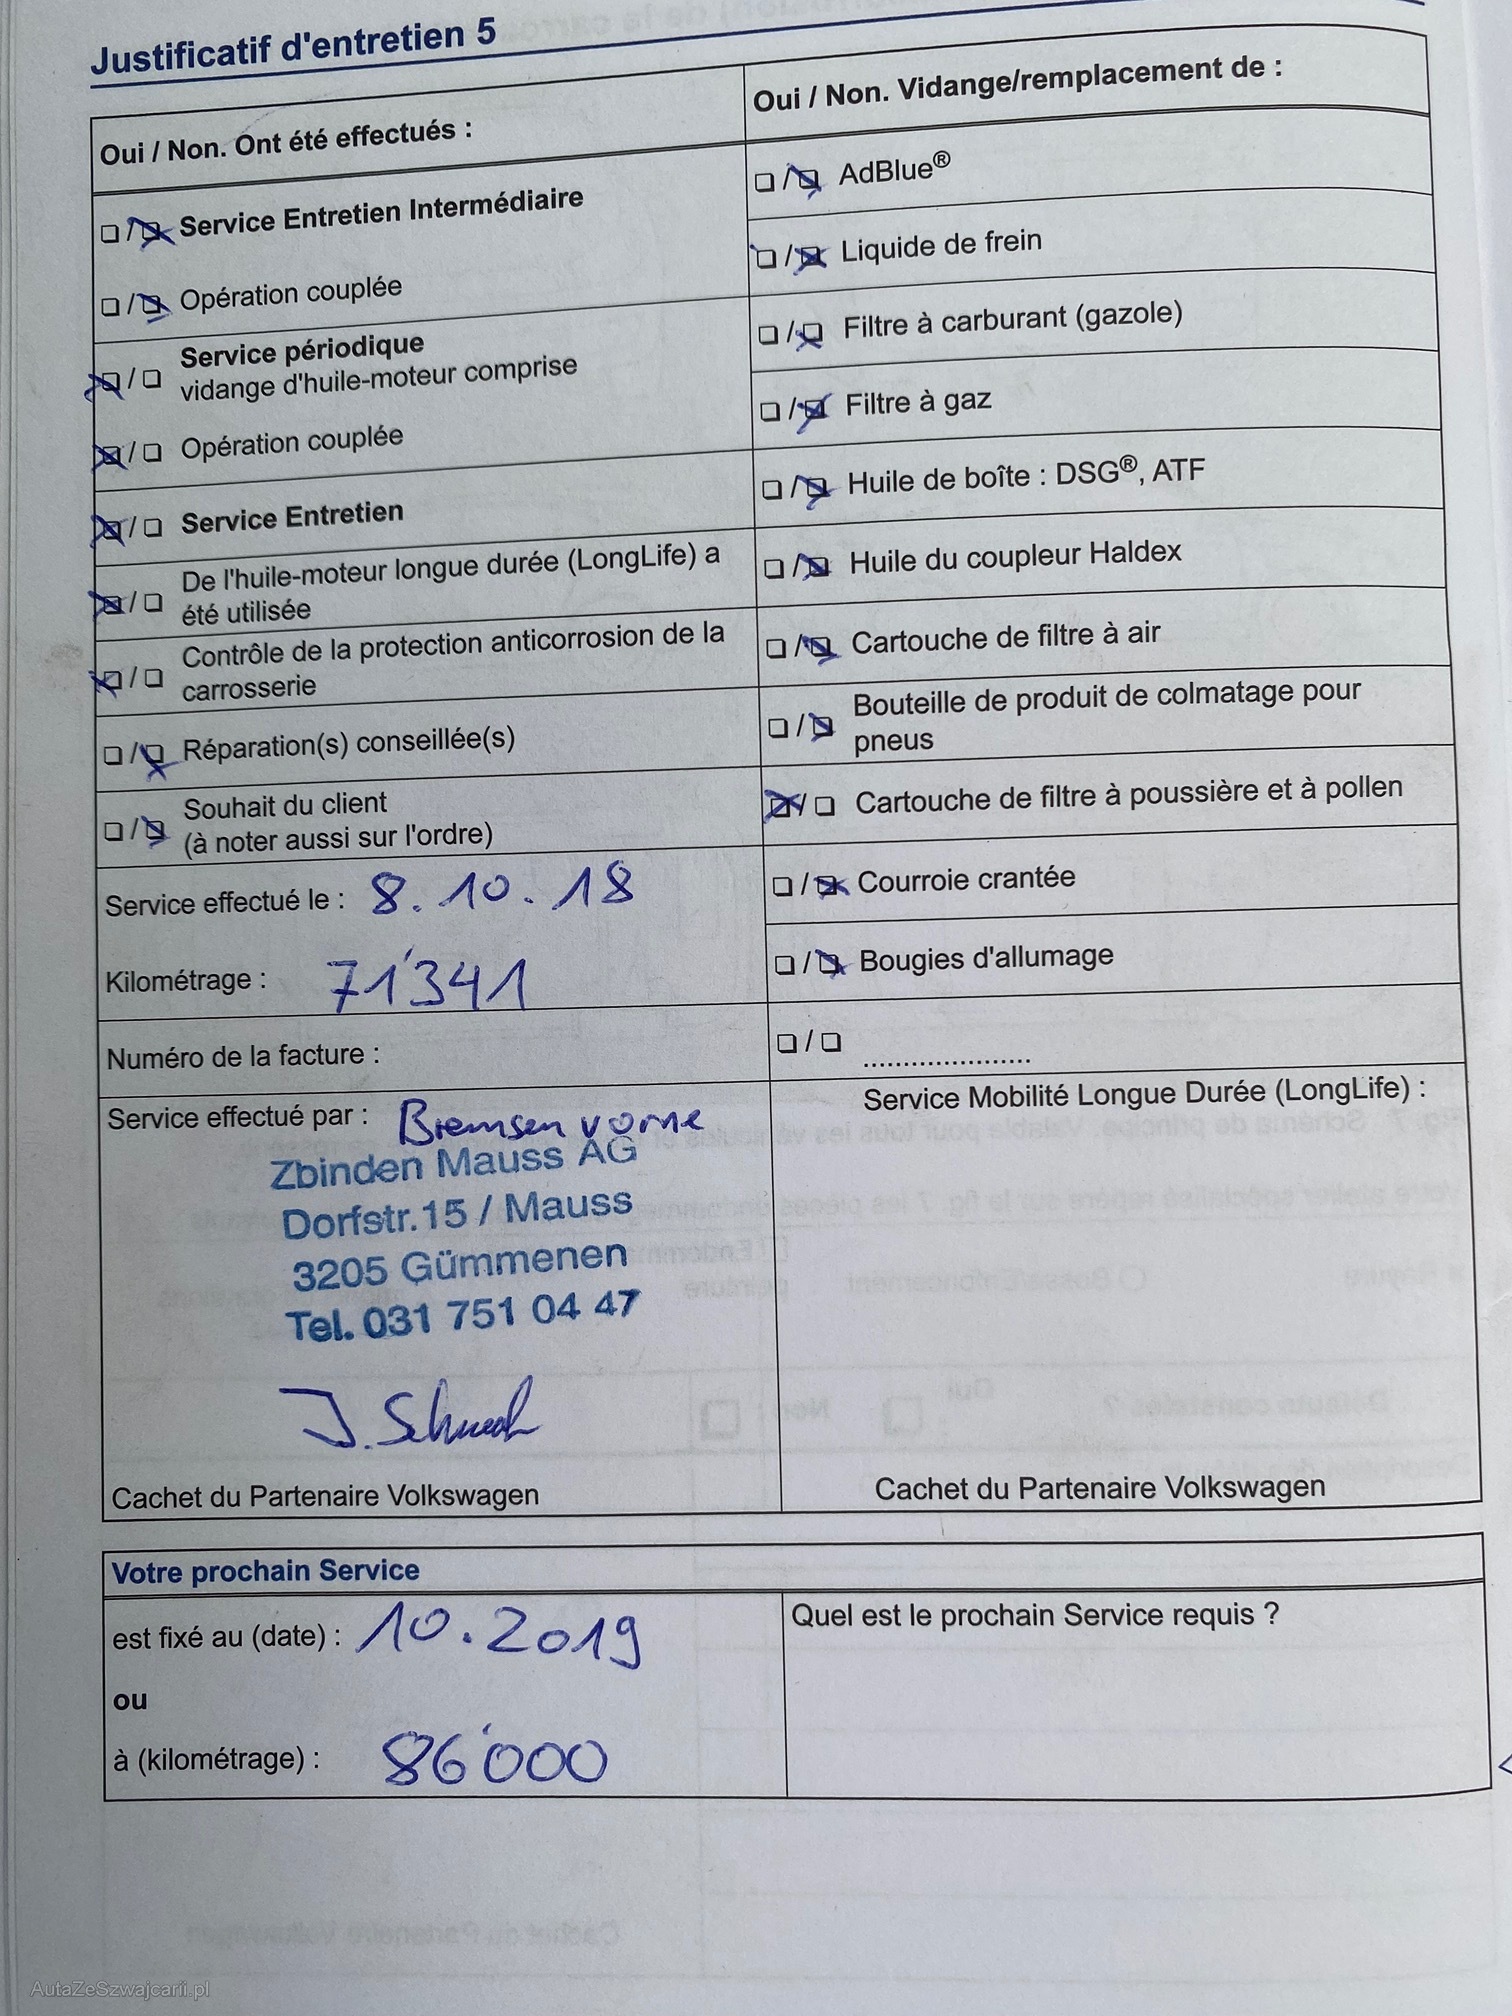 Justificatif d'entretien 5
Oui / Non. Ont été effectués :
☐ / ☒ Service Entretien Intermédiaire
☐ / ☒ Opération couplée
☒ / ☐ Service périodique
vidange d'huile-moteur comprise
☒ / ☐ Opération couplée
☒ / ☐ Service Entretien
☒ / ☐ De l'huile-moteur longue durée (LongLife) a
été utilisée
☒ / ☐ Contrôle de la protection anticorrosion de la
carrosserie
☐ / ☒ Réparation(s) conseillée(s)
☐ / ☒ Souhait du client
(à noter aussi sur l'ordre)
Service effectué le : 8.10.18
Kilométrage : 71'341
Numéro de la facture :
Service effectué par : Bremsen vorne
Zbinden Mauss AG
Dorfstr.15 / Mauss
3205 Gümmenen
Tel. 031 751 04 47
Cachet du Partenaire Volkswagen
Oui / Non. Vidange/remplacement de :
☐ / ☒ AdBlue®
☐ / ☒ Liquide de frein
☐ / ☒ Filtre à carburant (gazole)
☐ / ☒ Filtre à gaz
☐ / ☒ Huile de boîte : DSG®, ATF
☐ / ☒ Huile du coupleur Haldex
☐ / ☒ Cartouche de filtre à air
☐ / ☒ Bouteille de produit de colmatage pour
pneus
☒ / ☐ Cartouche de filtre à poussière et à pollen
☐ / ☒ Courroie crantée
☐ / ☒ Bougies d'allumage
☐ / ☐ .....................
Service Mobilité Longue Durée (LongLife) :
Cachet du Partenaire Volkswagen
Votre prochain Service
est fixé au (date) : 10.2019
ou
à (kilométrage) : 86'000
Quel est le prochain Service requis ?
AutaZeSzwajcarii.pl